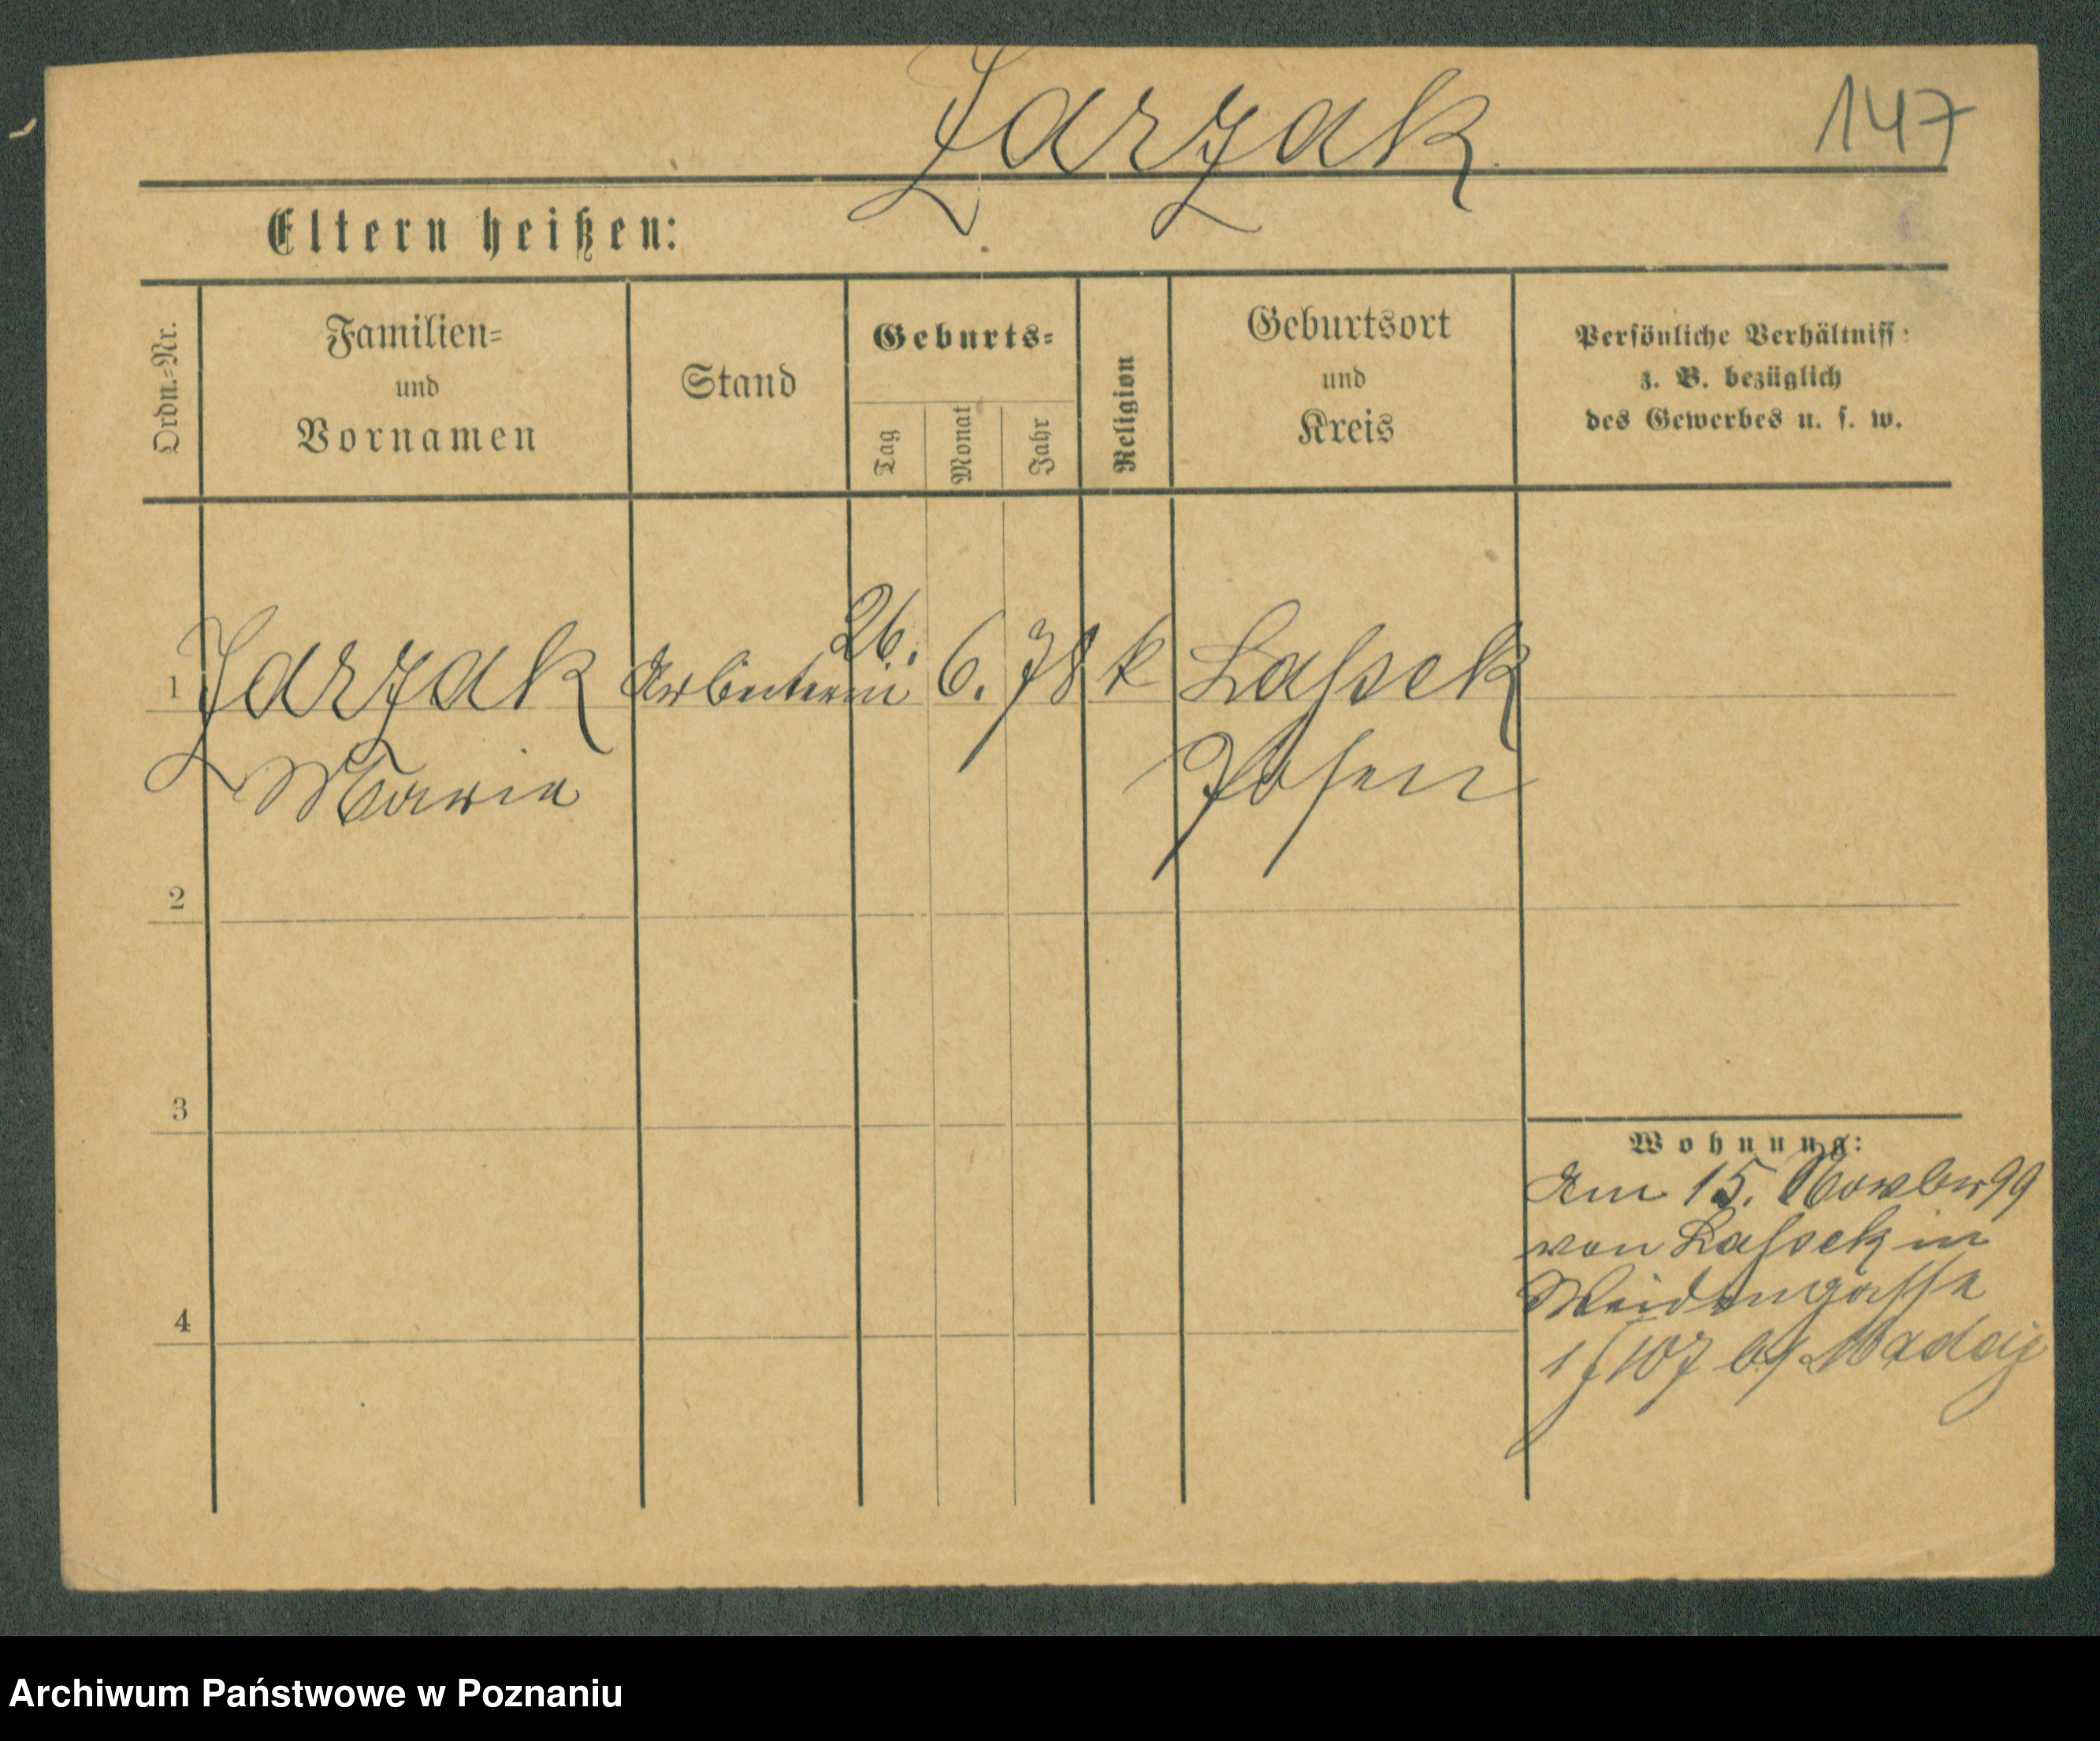 Jarzak
147
Eltern heißen:
Ordn.-Nr.
Familien-
und
Vornamen
Stand
Geburts-
Tag
Monat
Jahr
Religion
Geburtsort
und
Kreis
Persönliche Verhältniss
z. B. bezüglich
des Gewerbes u. s. w.
1
Jarzak
Marie
Arbeiterin
26.
6.
78
k
Lassek
Posen
2
3
4
Wohnung:
Am 15. Novbr 99
von Lassek in
Weidengasse
107
Archiwum Państwowe w Poznaniu